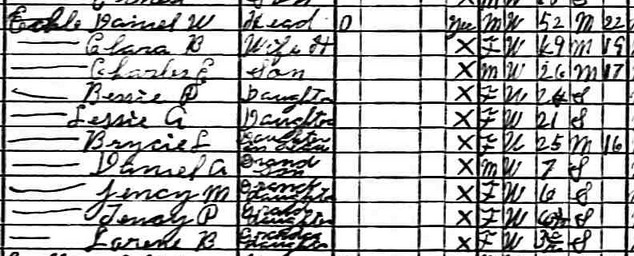 Eckle Daniel W Head O Yes M W 52 M 22
Clara B Wife H X F W 49 M 19
Charles E Son X M W 26 M 17
Bessie P Daughter X F W 24 S
Lessie A Daughter X F W 21 S
Brycie L Daughter in law X F W 25 M 16
Daniel A Grand Son X M W 7 S
Jency M Grand daughter X F W 6 S
Jenny P Grand daughter X F W S
Larene B Grand daughter X F W S